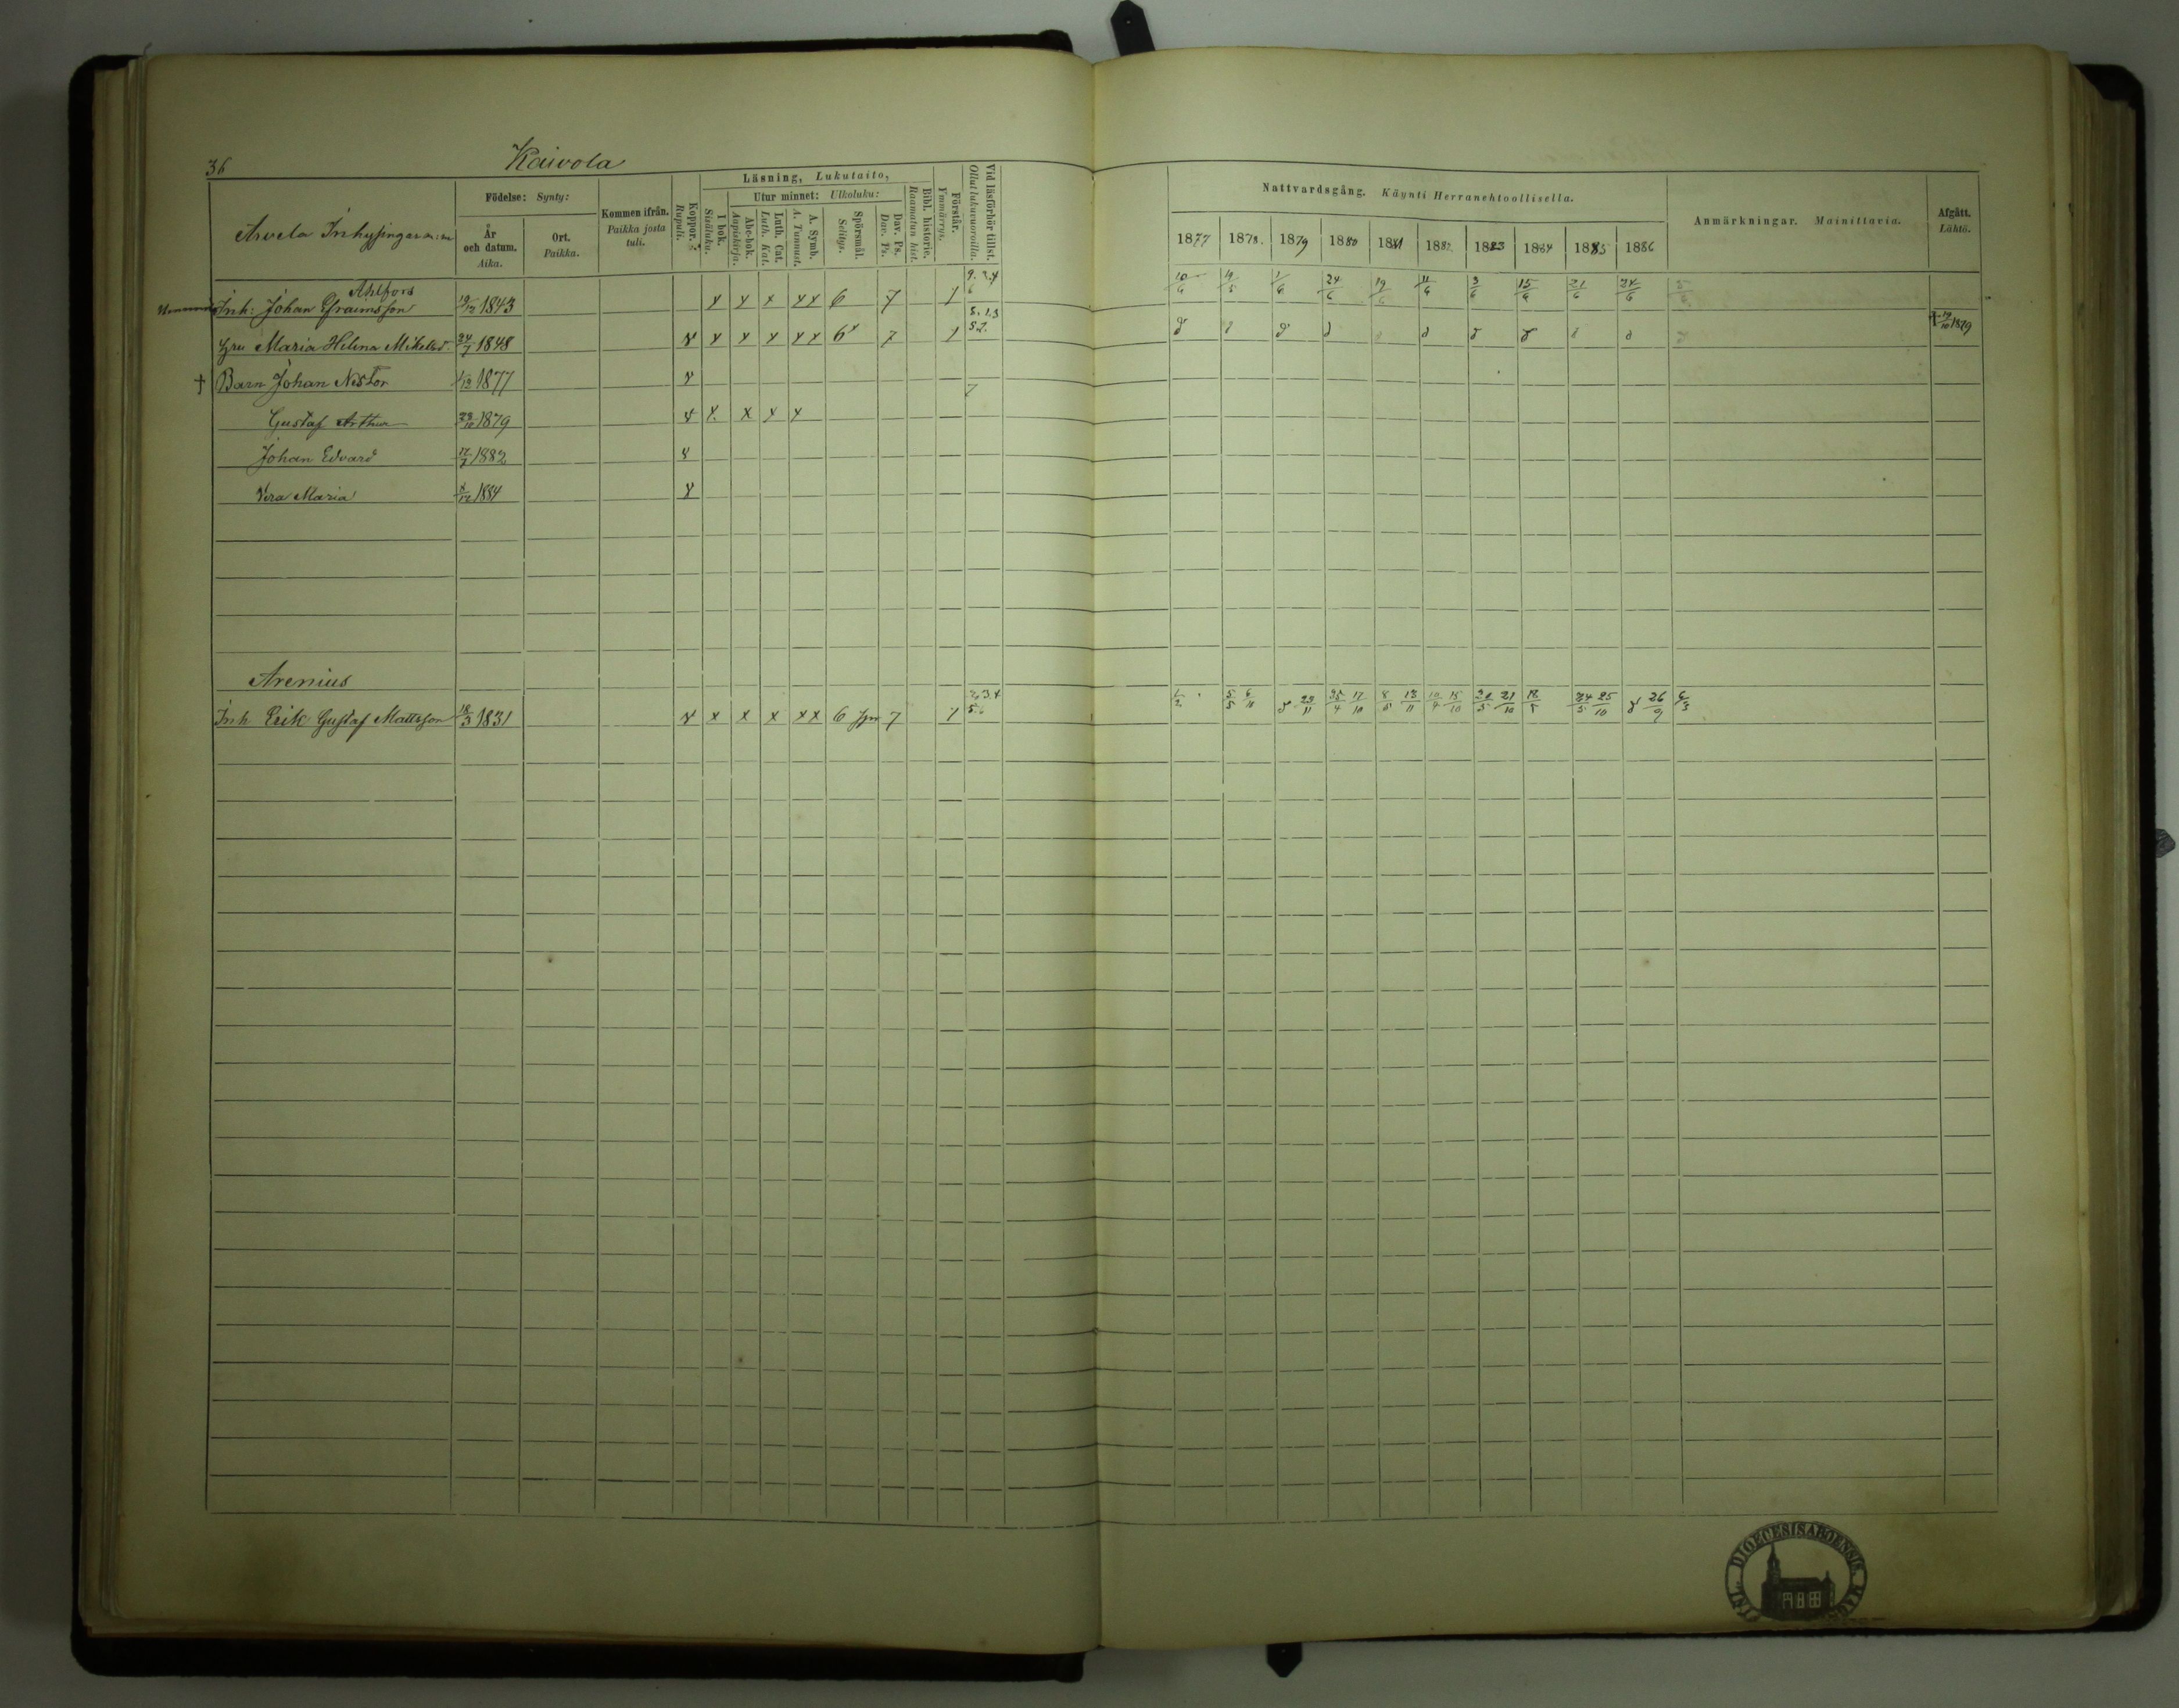 36
Kaivola
Arvela Inhysingar m:m
Födelse: Synty:
År och datum. Aika.
Ort. Paikka.
Kommen ifrån. Paikka josta tuli.
Koppor. Rupuli.
Läsning, Lukutaito,
I bok. Sisäluku.
Utur minnet: Ulkoluku:
Abc-bok. Aapiskirja.
Luth. Cat. Luth. Kat.
A. Symb. A. Tunnust.
Spörsmål. Selitys.
Dav. Ps. Dav. Ps.
Bibl. historie. Raamatun hist.
Förstår. Ymmärrys.
Vid läsförhör tillst. Ollut lukuvuoroilla.
Nattvardsgång. Käynti Herranehtoollisella.
1877 1878. 1879 1880 1881 1882 1883 1884 1885 1886
Anmärkningar. Mainittavia.
Afgått. Lähtö.
Ahlfors
Inh: Johan Efraimsson 19/12 1843 x x x xx 6 7 1 10/6 1/6 24/6 19/6 11/6 3/6 15/6 21/6 24/6
Hru Maria Helena Mikelsd. 24/7 1848 x x x x xx 6 7 1
† Barn Johan Nestor 1/12 1877 † 19/10 1879
Gustaf Arthur 23/10 1879 x x x x
Johan Edvard 17/7 1882
Vera Maria 1884
Arenius
Inh Erik Gustaf Mattsson 18/3 1831 x x x x xx 6 7 1 5/5 6/11 23/11 25/4 17/10 8/5 13/11 15/10 21/10 24/5 25/10 26/9
DIOECESIS ABOENSIS